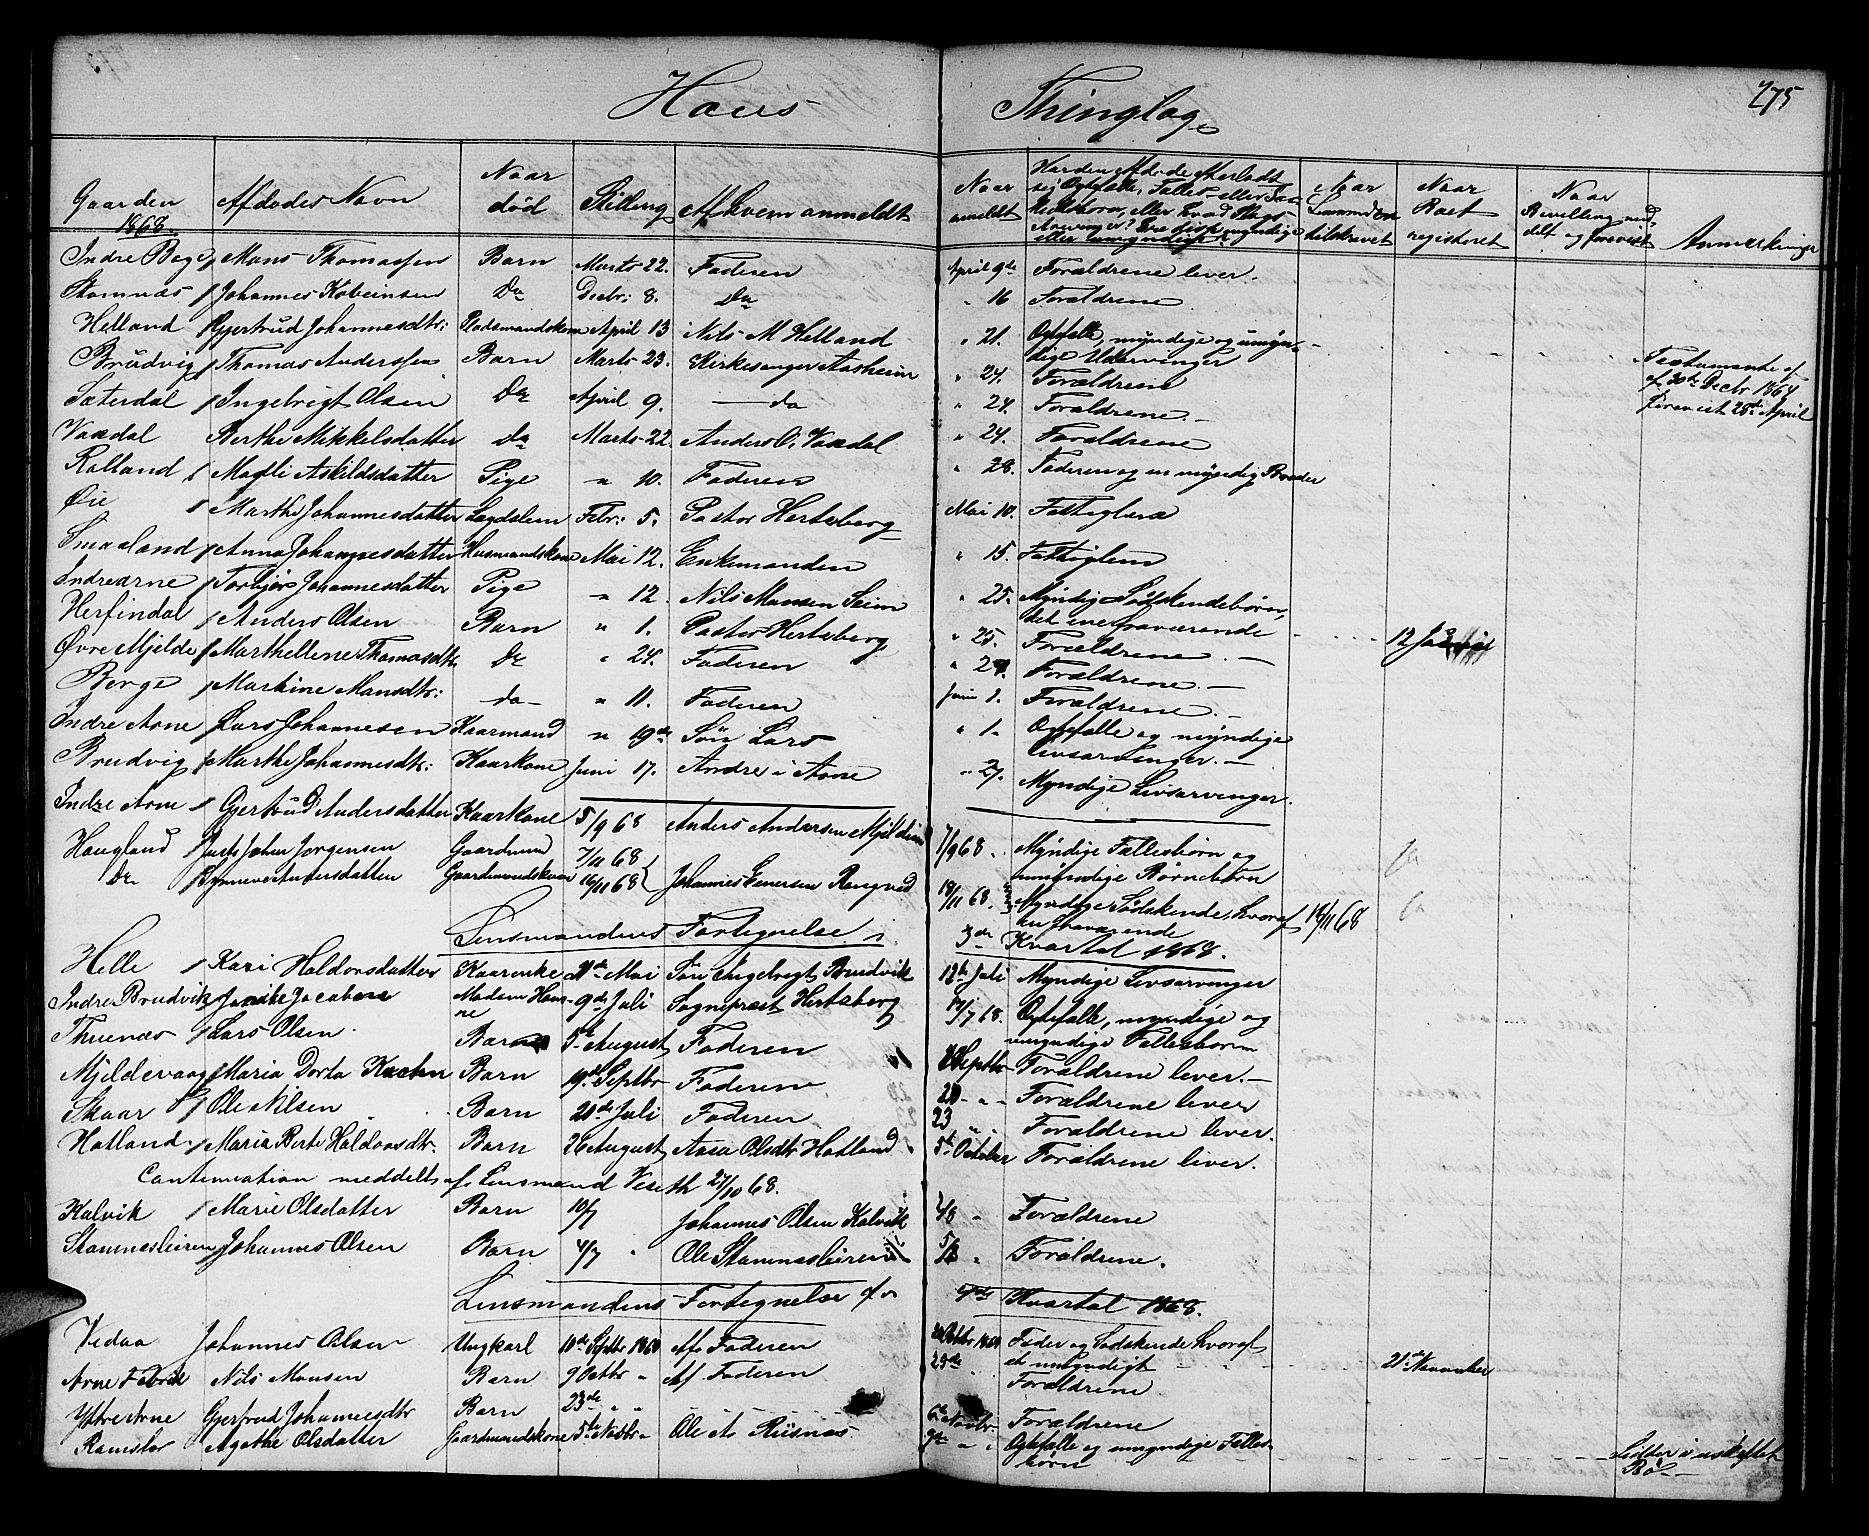 Haus Thinglag
275
Gaarden Afdødes Navn Naar død Stilling Af hvem anmeldt Naar anmeldt Naar Naar Naar Anmærkninger
1868
Indre Mons Thomassen Barn Marts 22. Faderen April 9de Forældrene lever.
Stamnæs Johannes Da Decbr: 8. Da " 16 Forældrene
Helland Gjertrud Johannesdtr: Pladsmandskone April 13 Nils M Helland " 21. Ægtefælle, myndige og umyn-
dige Udarvinger
Brudvig Thomas Anderssen Barn Marts 23. Kirkesanger Aasheim " 24. Forældrene
Testamente af
20de Decbr 1864
forevist 25de April
Sæterdal Ingebrigt Olsen Da April 9. do " 24. Forældrene.
Vaxdal Berthe Mikkelsdatter da Marts 22 Anders O. Vaxdal " 24. Forældrene
Kalland Madli Askildsdatter Pige " 10. Faderen " 28. Faderen og en myndig Broder
Øie Marthe Johannesdatter Lægdslem Febr: 5. Pastor Hertzberg Mai 10. Fattiglem
Smaaland Anna Johannesdatter Husmandskone Mai 12. Enkemanden " 15. Fattiglem
Indrearne Torbjør Johannesdatter Pige " 12 Nils Monsen Seim " 25. Myndig Sødskendebørn,
det ene fraværende
Herfindal Anders Olsen Barn " 1. Pastor Hertzberg " 25. Forældrene. 12
Øvre Mjelde Marthellene Thomasdtr. Da " 24. Faderen " Forældrene.
Berge Martine Monsdtr: do " 11. Faderen Juni 1. Forældrene.
Indre Arne Lars Johannesen Kaarmand " 19de Søn Lars " 1. Ægtefælle og myndige
Livsarvinger.
Brudvig Marthe Johannesdtr: Kaarkone Juni 17. Andre i Arne " 27. Myndige Livsarvinger.
Indre Arne Gjertrud Andersdatter Kaarkone 5/9 68 Anders Andersen Mjeldeim 7/9 68. Myndige Fællesbørn og
umyndige Børnebørn
Haugland Jorgensen Gaardmand 7/11 68
Do Synneve Andersdatter Gaardmandskone 16/11 68 Johannes Rengved 18/11 68. Myndige Sødskende, hvoraf 18/11 68
en fraværende
Lensmandens Fortegnelse i 3de Kvartal 1868.
Helle Kari Haldorsdatter Kaarenke Mai Søn Ingebrigt Brudvik 12te Juli Myndige Livsarvinger
Indre Brudvik Jacobsen Madam Han-
ne 9de Juli Sogneprest Hertzberg 17/7 68. Ægtefælle, myndige og
umyndige Fællesbørn
Thuenæs Lars Olsen. Barn 5te August Faderen Septbr Forældrene lever.
Mjeldevaag Maria Dorta Barn 19de Septbr Faderen 20 " " Forældrene lever
Skaar Ole Nilsen Barn 20de Juli Faderen 23 " " Forældrene lever.
Hatland Maria Berte Haldorsdtr. Barn 26 August Aasa Olsdtr Hatland 5te October Forældrene lever.
Continuation meddelt af Lensmand Veseth 27/10 68.
Kalvik Marie Olsdatter Barn 10/7 Johannes Olsen Kalvik 4/8 " Forældrene
Stamnesleiren Johannes Olsen Barn 4/7 " Ole Stamnesleiren " Forældrene.
Lensmandens Fortegnelse for 4de Kvartal 1868.
Vedaa Johannes Olsen Ungkarl 10de Septbr 1868 Af Faderen Octbr 1868 Fader og Sødskende hvoraf
et umyndigt 21de November
Arne Fabrik Nils Monsen Barn 9 Octbr " Af Faderen 29de Forældrene
Ytre Arne Gjertrud Johannesdtr Barn 23de " " 6te Novbr Forældrene
Ramslar Agathe Olsdatter Gaardmandskone 5te Novbr " Ole A. Riisnæs 9de " " Ægtefælle og umyndige Fælles-
børn
Sidder i uskiftet
Bo